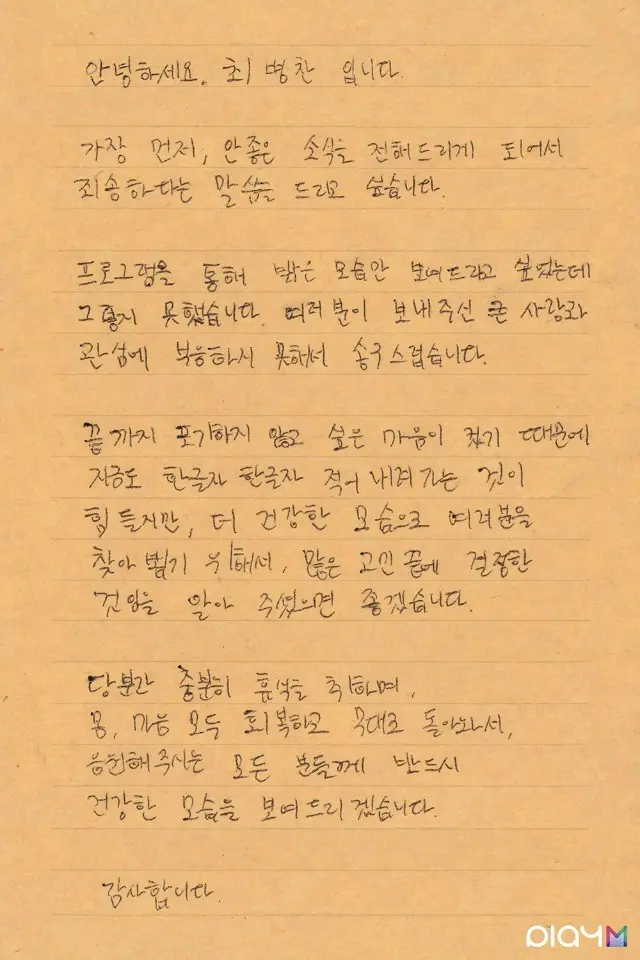 안녕하세요. 최병찬 입니다.
가장 먼저, 안좋은 소식을 전해드리게 되어서
죄송하다는 말씀을 드리고 싶습니다.
프로그램을 통해 밝은 모습만 보여드리고 싶었는데
그렇지 못했습니다. 여러분이 보내주신 큰 사랑과
관심에 보응하지 못해서 송구스럽습니다.
끝까지 포기하지 않고 싶은 마음이 컸기 때문에
지금도 한글자 한글자 적어 내려가는 것이
힘들지만, 더 건강한 모습으로 여러분을
찾아뵙기 위해서, 많은 고민 끝에 결정한
것임을 알아 주셨으면 좋겠습니다.
당분간 충분히 휴식을 취하며,
몸, 마음 모두 회복하고 무대로 돌아와서,
응원해주시는 모든 분들께 반드시
건강한 모습을 보여드리겠습니다.
감사합니다.
PlayM